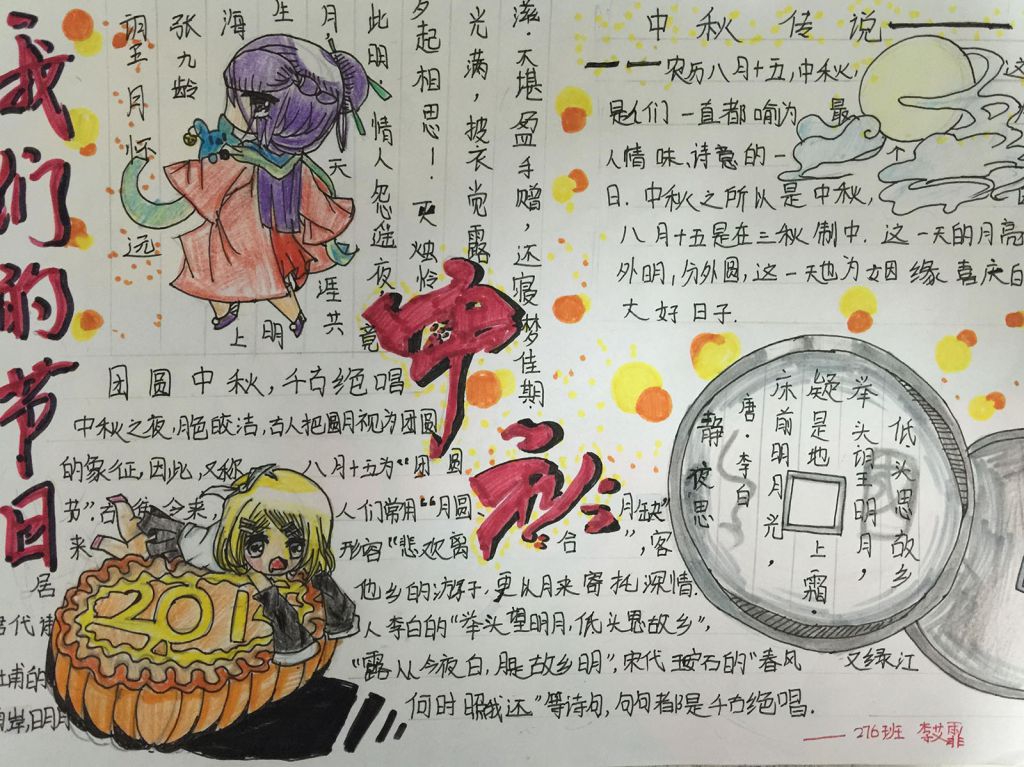 我们的节日
中秋
望月怀远
张九龄
海上
生明
月,天涯共
此明.情人怨遥夜竟
夕起相思!灭烛怜
光满,披衣觉露
滋.不堪盈手赠,还寝梦佳期.
中秋传说
农历八月十五,中秋,这
是人们一直都喻为最
人情味,诗意的一
日.中秋之所以是中秋,
八月十五是在三秋制中.这一天的月亮
外明,分外圆,这一天也为姻缘喜庆日
大好日子.
静夜思
唐·李白
床前明月光,
疑是地上霜.
举头望明月,
低头思故乡
团圆中秋,千古绝唱
中秋之夜,月色皎洁,古人把圆月视为团圆
的象征,因此,又称八月十五为"团圆
节".古今来,人们常用"月圆月缺"
来形容"悲欢离合",客
居他乡的游子,更以月来寄托深情.
唐代诗人李白的"举头望明月,低头思故乡",
杜甫的"露从今夜白,月是故乡明",宋代王安石的"春风又绿江
南岸,明月何时照我还"等诗句,句句都是千古绝唱.
201
276班 李艾霏